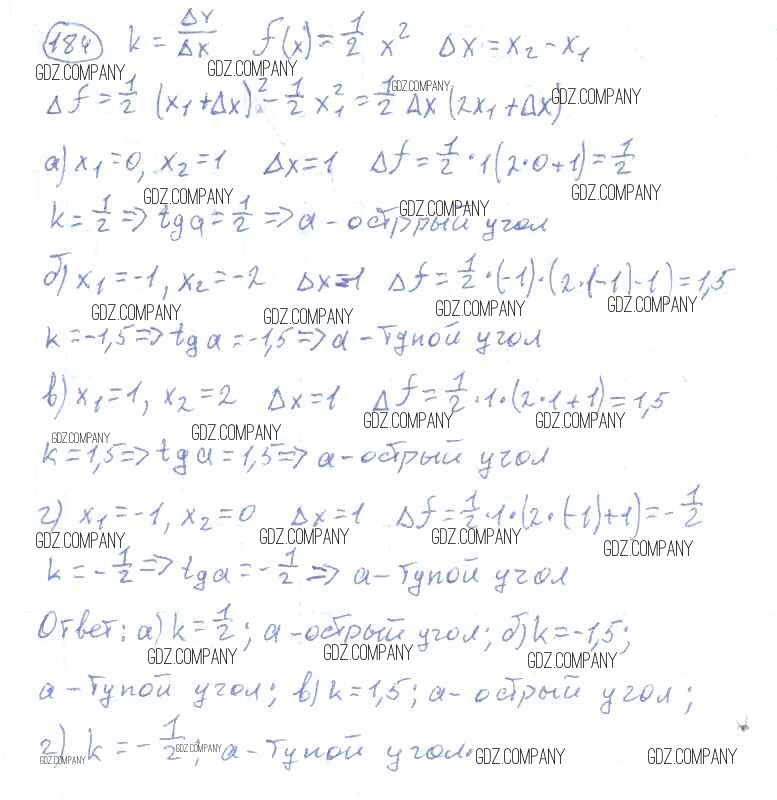 184 k = Δy/Δx f(x) = 1/2 x² Δx = x₂ - x₁
GDZ.COMPANY GDZ.COMPANY
Δf = 1/2 (x₁ + Δx)² - 1/2 x₁² = 1/2 Δx (2x₁ + Δx)
GDZ.COMPANY GDZ.COMPANY
а) x₁ = 0, x₂ = 1 Δx = 1 Δf = 1/2 · 1(2·0+1) = 1/2
GDZ.COMPANY GDZ.COMPANY
k = 1/2 => tg a = 1/2 => a - остррый угол
GDZ.COMPANY
б) x₁ = -1, x₂ = -2 Δx = 1 Δf = 1/2 · (-1) · (2·(-1)-1) = 1,5
GDZ.COMPANY GDZ.COMPANY GDZ.COMPANY GDZ.COMPANY
k = -1,5 => tg a = -1,5 => a - тупой угол
в) x₁ = 1, x₂ = 2 Δx = 1 Δf = 1/2 · 1 · (2·1+1) = 1,5
GDZ.COMPANY GDZ.COMPANY GDZ.COMPANY GDZ.COMPANY
k = 1,5 => tg a = 1,5 => a - острый угол
г) x₁ = -1, x₂ = 0 Δx = 1 Δf = 1/2 · 1 · (2·(-1)+1) = - 1/2
GDZ.COMPANY GDZ.COMPANY GDZ.COMPANY GDZ.COMPANY
k = - 1/2 => tg a = - 1/2 => a - тупой угол
Ответ: а) k = 1/2; a - острый угол; б) k = -1,5;
GDZ.COMPANY GDZ.COMPANY GDZ.COMPANY
a - тупой угол; в) k = 1,5; a - острый угол;
г) k = - 1/2; a - тупой угол.
GDZ.COMPANY GDZ.COMPANY GDZ.COMPANY GDZ.COMPANY